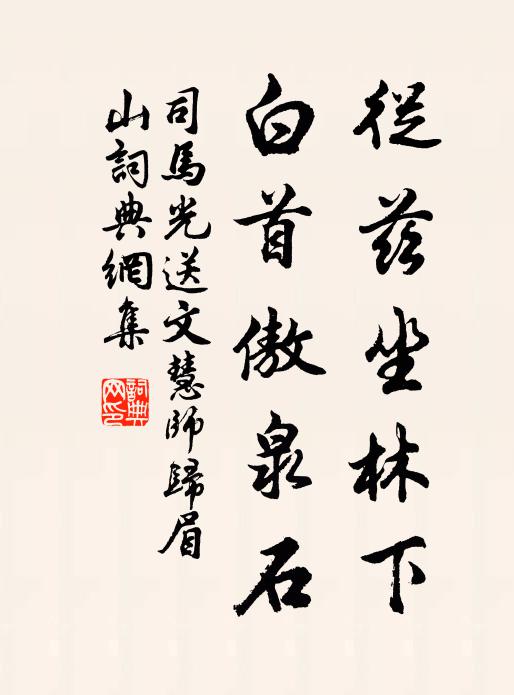 從茲坐林下
白首傲泉石
司馬光送文慧師歸眉
山詞典網集
詞典
网印